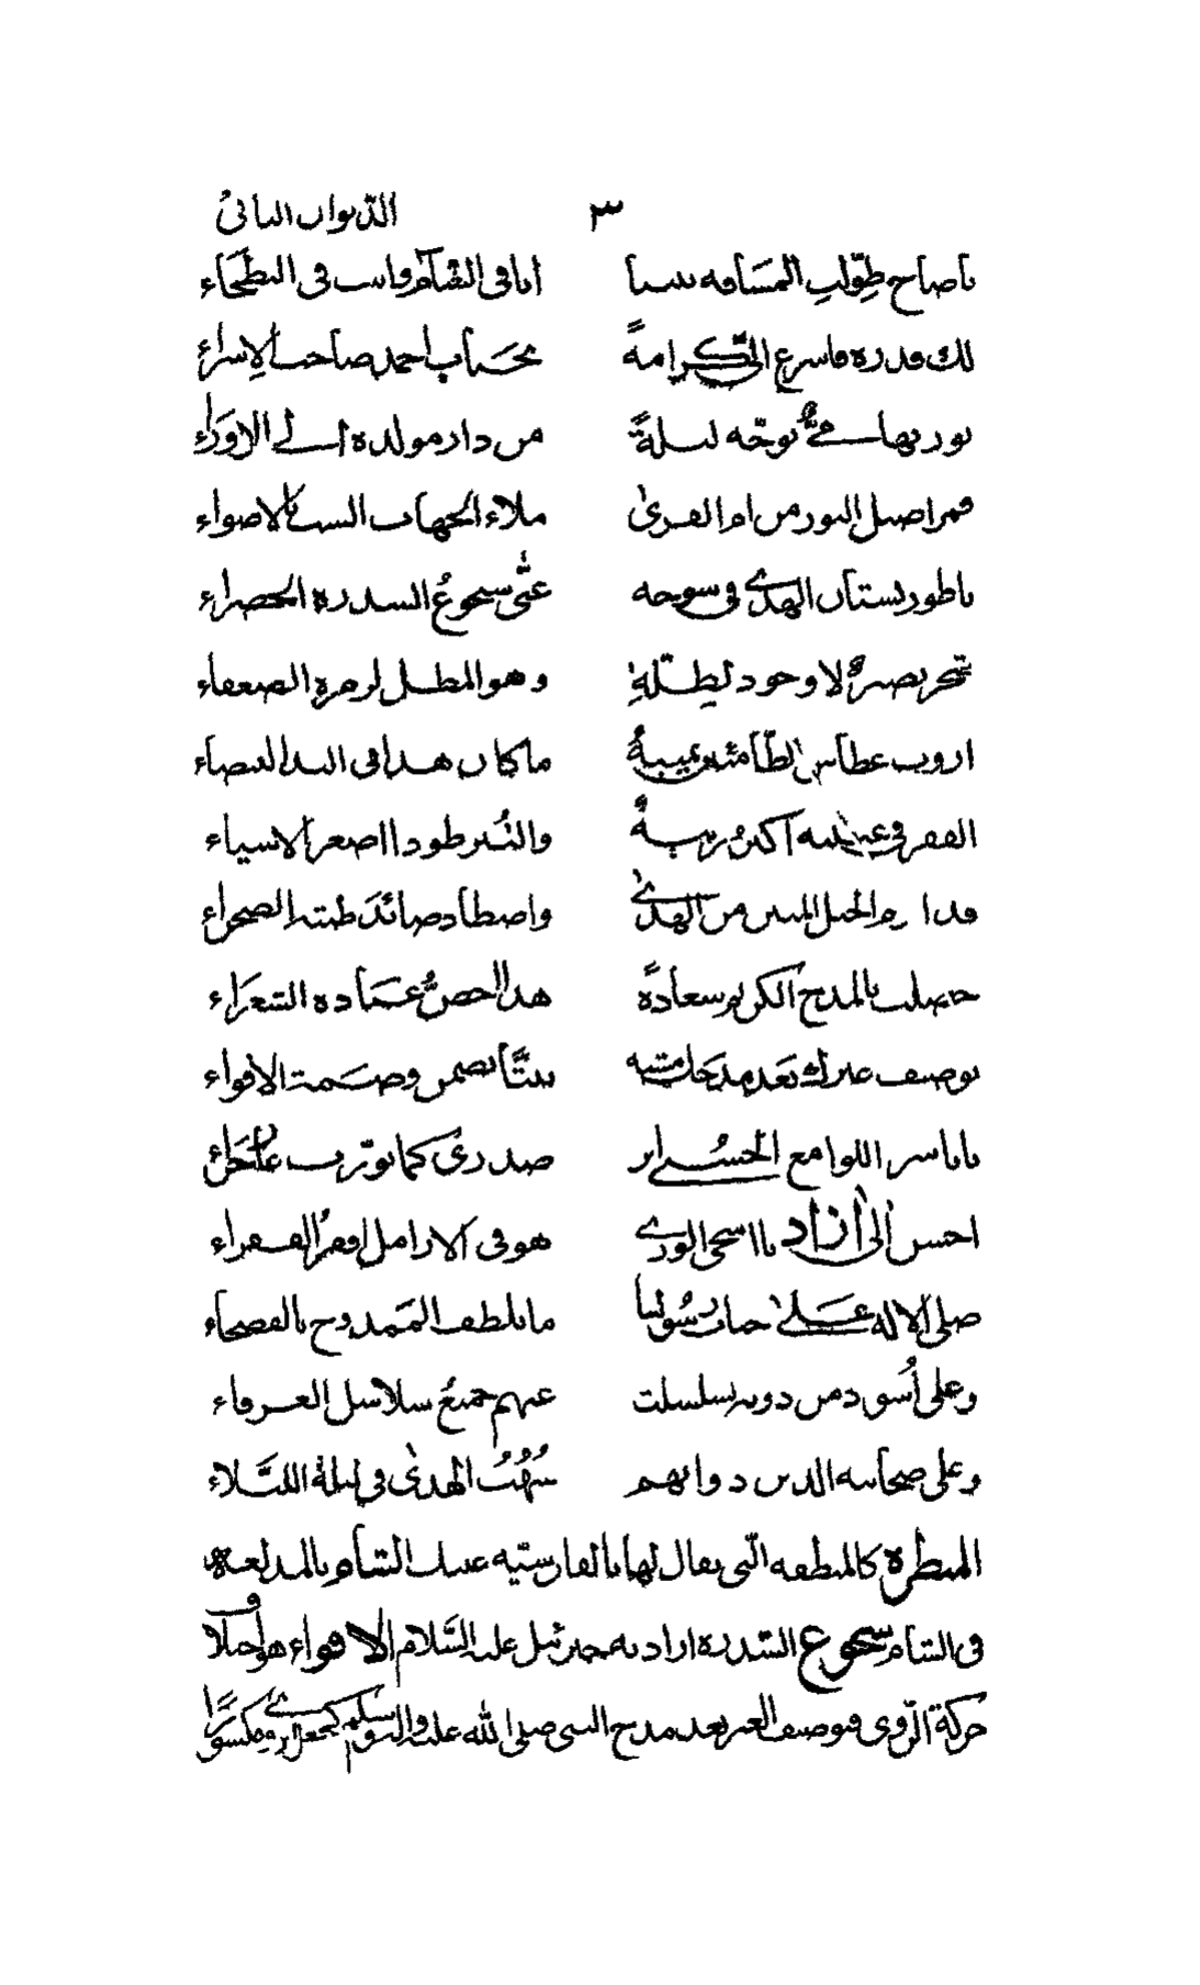 ٣ الديوان الثاني
يا صاح طولت المسافة بيننا انا في الشآم وانت في البطحاء
لك قدرة فاسرع الي كرامةً بجناب احمد صاحب الاسراء
نور بهاسمي توجه ليلةً من دار مولده الى الزوراء
قمر اصيل النور من ام القرى ملاء الجهات الست بالاضواء
يا طور بستان الهدى في سوحه غنّى سجوع السدرة الخضراء
وهو المطل لزمرة الضعفاء
ارويت عطاس الظامئين ما كان هذا في اليد البيضاء
الفقر في عينيه اكبر رتبةً والتبر طودا اصغر الاشياء
قد ام الحبل المتين من الهدى واصطاد صائد ظبية الصحراء
حصلت بالمدح الكريم سعادةً هذا اخص عبادة الشعراء
توصيف غيرك بعد مدحك مشبه بيتًا تضمن وصمة الاقواء
يا ناشر اللوامع الحسنى انر صدري كما نورت غار حراء
احسن الى آزاد يا اسخى الورى هو في الارامل افقر الفقراء
صلى الاله على جناب رسولنا ما تلطف الممدوح بالفصحاء
وعلى أسود من دويه تسلسلت عنهم جميع سلاسل العرفاء
وعلى صحابته الذين ذواتهم شهب الهدى في ليلة الليلاء
المنطرة كالمنطقة التي يقال لها بالفارسية عينك الشآم بالمد لغة
في الشام سجوع السدرة اراد به جبرئيل عليه السلام الاقواء هو اختلاف
حركة الروي فتوصيف الغير بعد مدح النبي صلى الله عليه واله وسلم كجعل الروي مكسورا